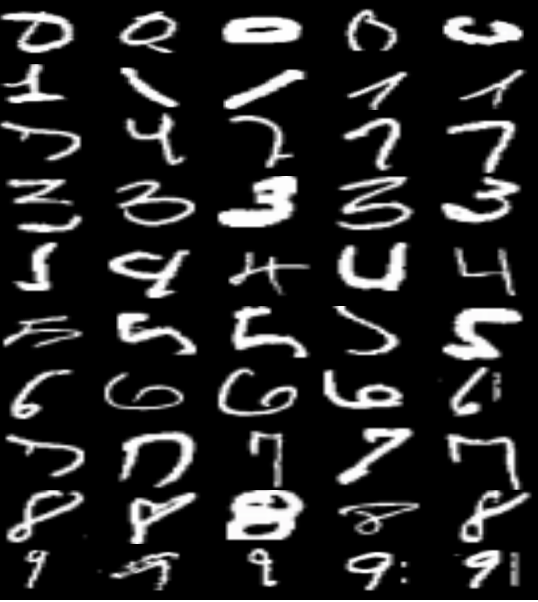 0 0 0 0 0
1 1 1 1 1
7 4 2 7 7
3 3 3 3 3
4 4 4 4
5 5 5 5
6 6 6 6 6
7 7 7 7 7
8 8 8 8 8
9 9 9 9 9